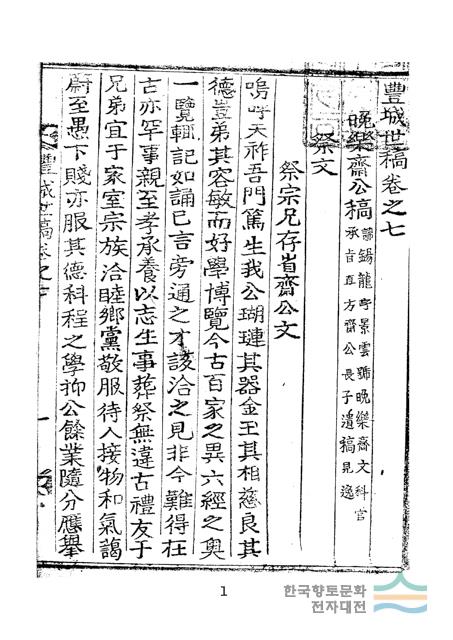 豐城世稿卷之七
晚樂齋公稿 諱錫龍字景雲號晚樂齋文科官
承旨直方齋公長子遺稿見逸
祭文
祭宗兄存省齋公文
嗚呼天祚吾門篤生我公瑚璉其器金玉其相慈良其
德豈弟其容敏而好學博覽今古百家之異六經之奧
一覽輒記如誦已言旁通之才該洽之見非今難得在
古亦罕事親至孝承養以志生事葬祭無違古禮友于
兄弟宜于家室宗族洽睦鄉黨敬服待人接物和氣藹
蔚至愚下賤亦服其德科程之學抑公餘業隨分應擧
豐城世稿卷之七
一
1
한국향토문화
전자대전